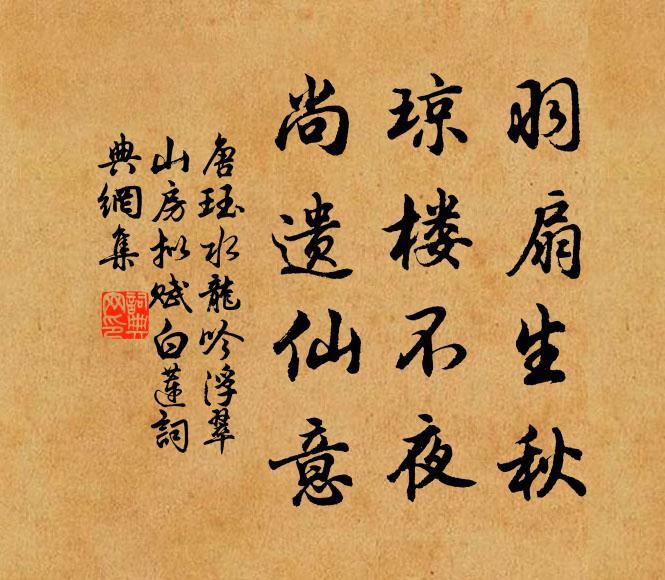 羽扇生秋
琼楼不夜
尚遗仙意
唐珏水龍吟浮翠
山房拟赋白莲詞
典網集
詞典
网印